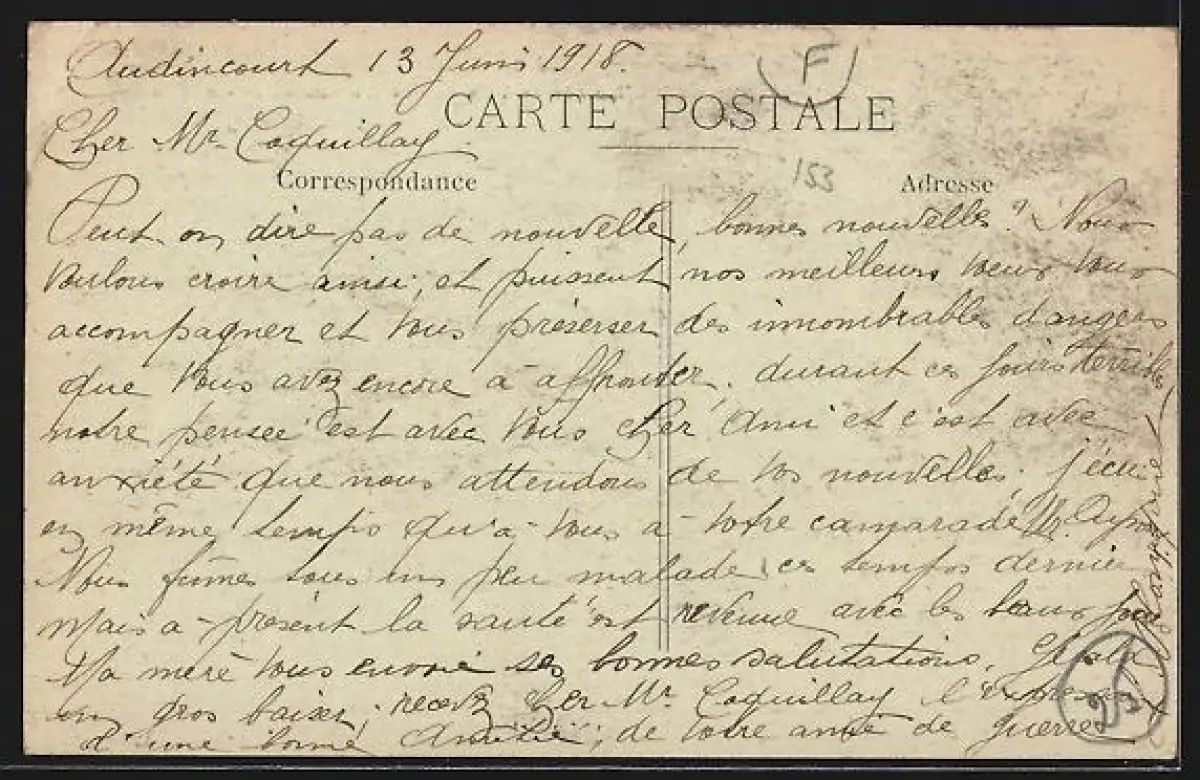 Audincourt 13 Juin 1918.
(F)
CARTE POSTALE
Cher Mr Coquillay.
153
Correspondance
Adresse
Peut-on dire pas de nouvelle, bonnes nouvelles? Nous
voulons croire ainsi, et puissent nos meilleurs voeux vous
accompagner et vous préserser des innombrables dangers
que vous avez encore à affronter. durant ces jours terribles
notre pensée est avec vous cher Ami et c'est avec
anxiété que nous attendons de vos nouvelles; j'écris
en même temps qu'à-vous à-votre camarade Mr.
Nous fûmes tous un peu malade ces temps dernier
mais à-présent la santé est revenue avec les beaux jours
Ma mère vous envoie ses bonnes salutations,
un gros baiser; recevez Cher Mr Coquillay
d'une bonne Amitié; de votre amie de guerre
25